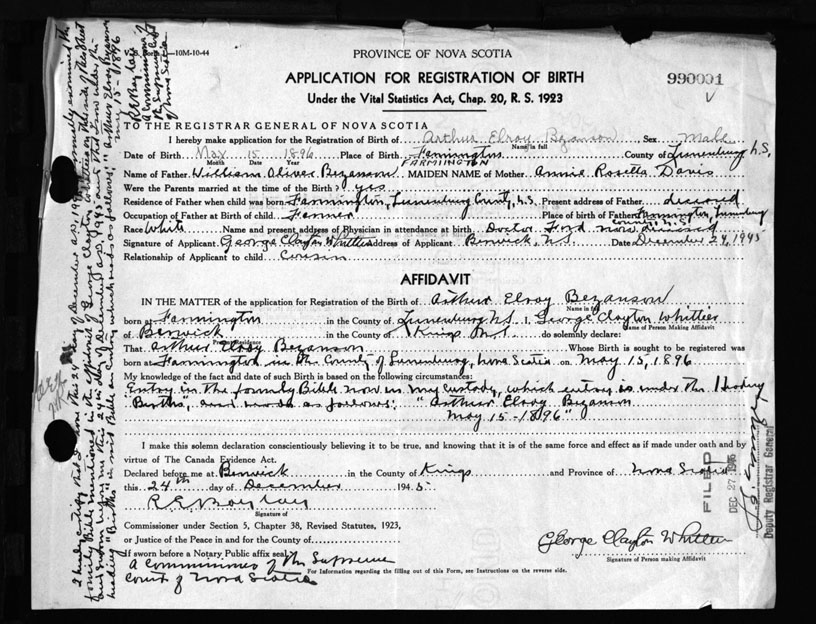 V. S. Form 10M-10-44
PROVINCE OF NOVA SCOTIA
APPLICATION FOR REGISTRATION OF BIRTH
990001
Under the Vital Statistics Act, Chap. 20, R. S. 1923
TO THE REGISTRAR GENERAL OF NOVA SCOTIA
I hereby make application for the Registration of Birth of Arthur Elroy Bezanson, Sex Male
Name in full
Date of Birth May 15 1896 Place of Birth Farmington County of Lunenburg N.S.
Month Date Year FARMINGTON
Name of Father William Oliver Bezanson MAIDEN NAME of Mother Annie Rosella Davis
Were the Parents married at the time of the Birth? yes
Residence of Father when child was born Farmington, Lunenburg County, N.S. Present address of Father deceased
Occupation of Father at Birth of child Farmer Place of birth of Father Farmington, Lunenburg
County N.S.
Race White Name and present address of Physician in attendance at birth Doctor Ford now deceased
Signature of Applicant George Clayton Whittier Address of Applicant Berwick, N.S. Date December 24, 1945
Relationship of Applicant to child Cousin
AFFIDAVIT
IN THE MATTER of the application for Registration of the Birth of Arthur Elroy Bezanson
Name in full
born at Farmington in the County of Lunenburg N.S. I, George Clayton Whittier
Name of Person Making Affidavit
of Berwick in the County of Kings N.S. do solemnly declare:
Present Residence
That Arthur Elroy Bezanson Whose Birth is sought to be registered was
born at Farmington in the County of Lunenburg, Nova Scotia on May 15, 1896
My knowledge of the fact and date of such Birth is based on the following circumstances:
"Entry in the family Bible now in my custody, which entry is under the Heading
"Births", and reads as follows: "Arthur Elroy Bezanson
May 15-1896"
I make this solemn declaration conscientiously believing it to be true, and knowing that it is of the same force and effect as if made under oath and by
virtue of The Canada Evidence Act.
Declared before me at Berwick in the County of Kings and Province of Nova Scotia
this 24th day of December 1945
Signature of
Commissioner under Section 5, Chapter 38, Revised Statutes, 1923,
or Justice of the Peace in and for the County of
If sworn before a Notary Public affix seal
A Commissioner of the Supreme
Court of Nova Scotia
George Clayton Whittier
Signature of Person making Affidavit
For Information regarding the filling out of this Form, see Instructions on the reverse side.
FILED
DEC 27 1945
Deputy Registrar General
I hereby certify that I have this 24 day of December A.D. 1945 personally examined the
family Bible mentioned in the affidavit of George Clayton Whittier on the side of this sheet
and sworn before me this 24th day of December A.D. 1945 and that I saw under the
heading "Births" in said Bible an entry which reads as follows, "Arthur Elroy Bezanson
May 15-1896"
A Commissioner of
the Supreme Court
of Nova Scotia